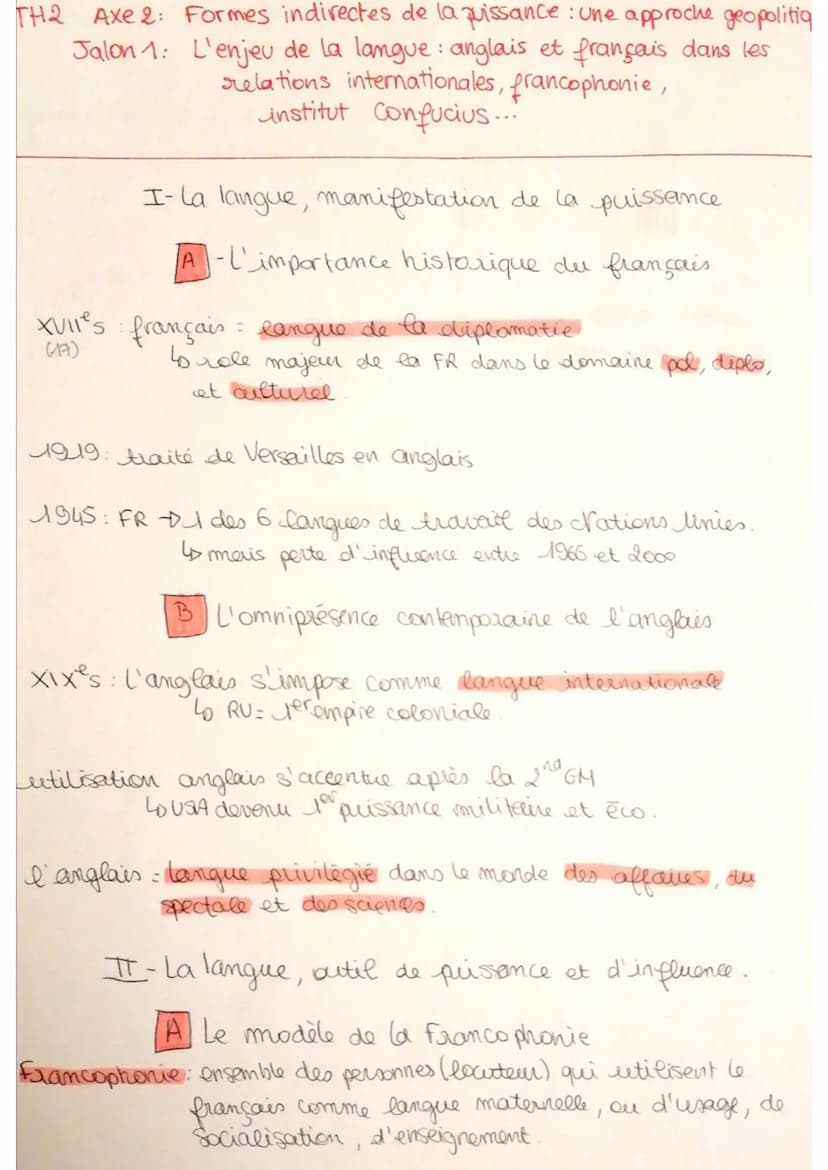 TH2 Axe 2: Formes indirectes de la puissance : une approche geopolitiq
Jalon 1: L'enjeu de la langue : anglais et français dans les
relations internationales, francophonie,
institut Confucius...
I- La langue, manifestation de la puissance
A - L'importance historique du français
XVIIe s : français = langue de la diplomatie
(17)
↳ role majeur de la FR dans le domaine pol, diplo,
et culturel.
1919: traité de Versailles en anglais
1945: FR → 1 des 6 langues de travail des Nations Unies.
↳ mais perte d'influence entre 1966 et 2000
B L'omniprésence contemporaine de l'anglais
XIXe s : L'anglais s'impose comme langue internationale
↳ RU = 1er empire coloniale.
utilisation anglais s'accentue après la 2nd GM
↳ USA devenu 1er puissance militaire et éco.
l'anglais = langue privilégié dans le monde des affaires, du
spectale et des sciences.
II - La langue, outil de puissance et d'influence.
A Le modèle de la Francophonie
Francophonie: ensemble des personnes (locuteur) qui utilisent le
français comme langue maternelle, ou d'usage, de
socialisation, d'enseignement.